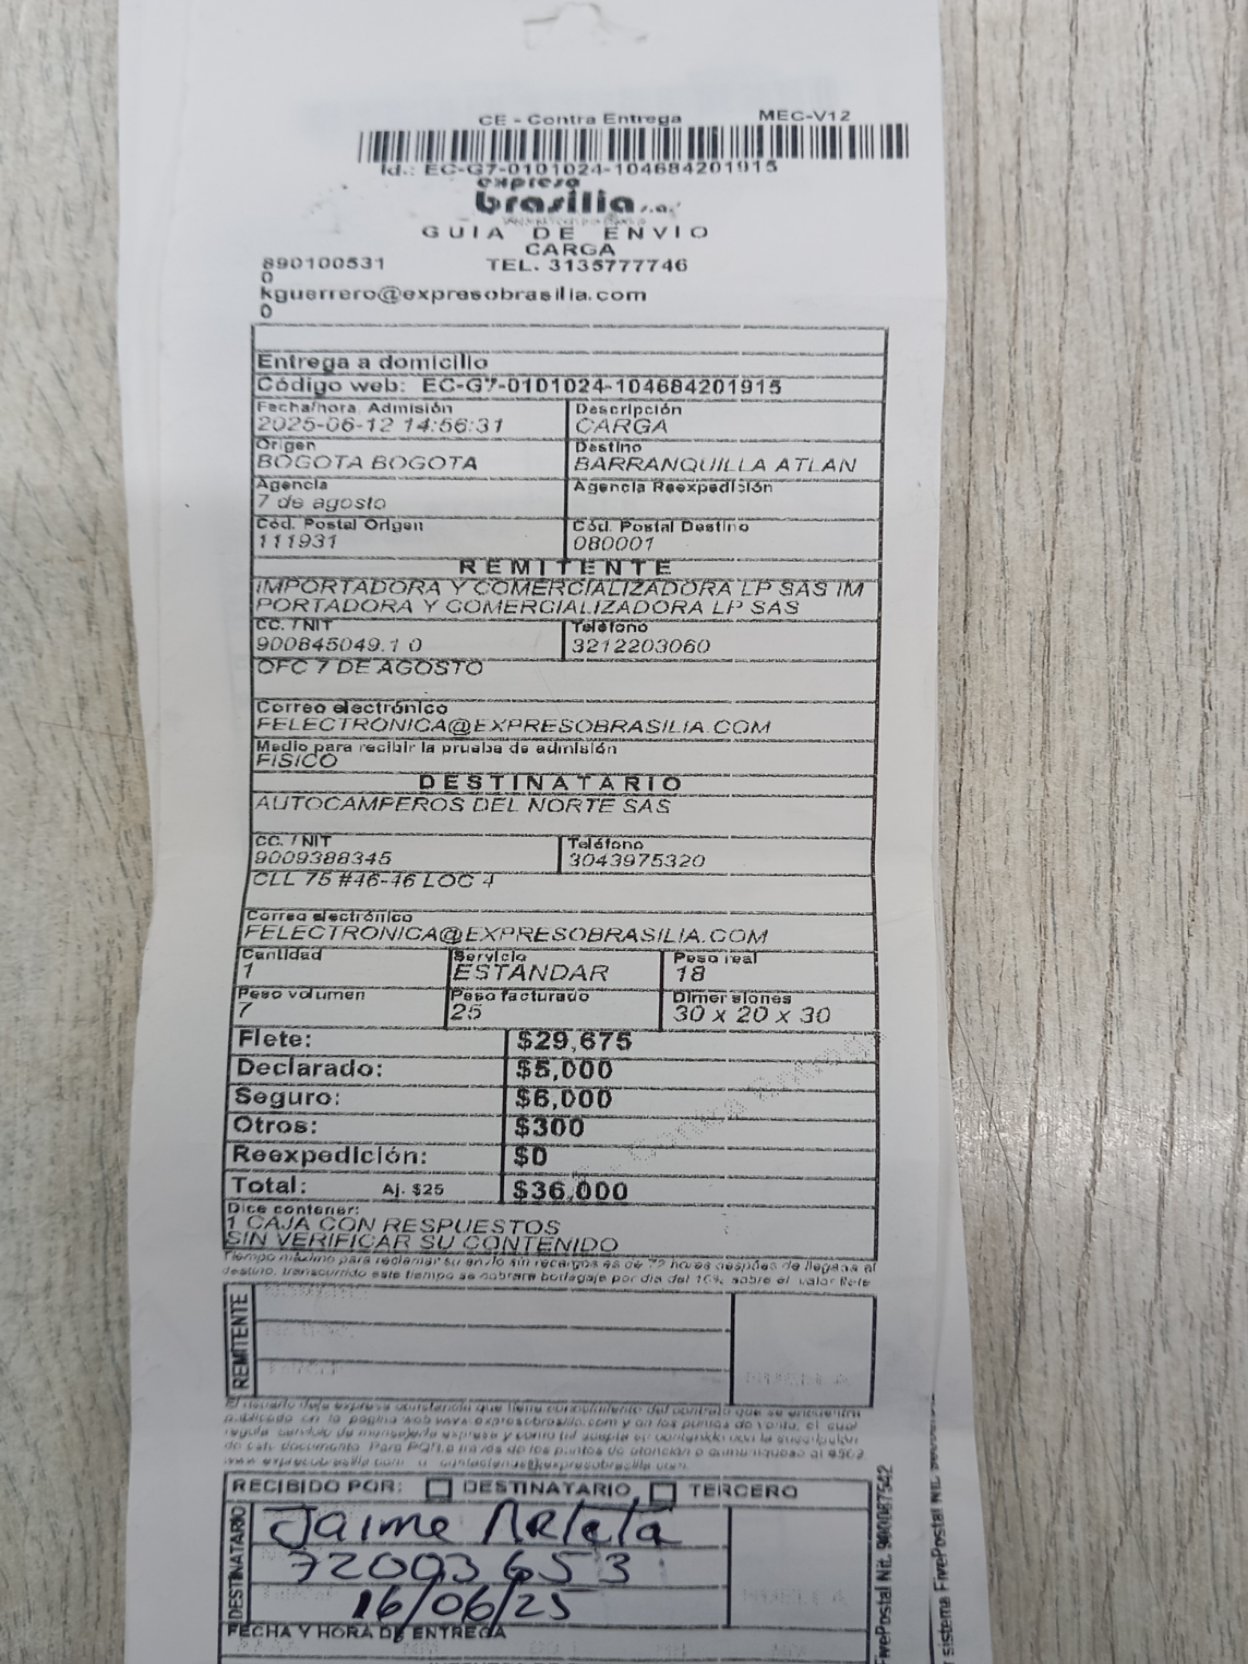 CE - Contra Entrega MEC-V12
Id.: EC-G7-0101024-104684201915
expreso
brasilia s.a.
GUIA DE ENVIO
CARGA
890100531 TEL. 3135777746
0
kguerrero@expresobrasilia.com
0
Entrega a domicilio
Código web: EC-G7-0101024-104684201915
Fecha/hora Admisión Descripción
2025-06-12 14:56:31 CARGA
Origen Destino
BOGOTA BOGOTA BARRANQUILLA ATLAN
Agencia Agencia Reexpedición
7 de agosto
Cód. Postal Origen Cód. Postal Destino
111931 080001
REMITENTE
IMPORTADORA Y COMERCIALIZADORA LP SAS IM
PORTADORA Y COMERCIALIZADORA LP SAS
CC. / NIT Teléfono
900845049.1 0 3212203060
OFC 7 DE AGOSTO
Correo electrónico
FELECTRONICA@EXPRESOBRASILIA.COM
Medio para recibir la prueba de admisión
FISICO
DESTINATARIO
AUTOCAMPEROS DEL NORTE SAS
CC. / NIT Teléfono
9009388345 3043975320
CLL 75 #46-46 LOC 4
Correo electrónico
FELECTRONICA@EXPRESOBRASILIA.COM
Cantidad Servicio Peso real
1 ESTANDAR 18
Peso volumen Peso facturado Dimensiones
7 25 30 x 20 x 30
Flete: $29,675
Declarado: $5,000
Seguro: $6,000
Otros: $300
Reexpedición: $0
Total: Aj. $25 $36,000
Dice contener:
1 CAJA CON RESPUESTOS
SIN VERIFICAR SU CONTENIDO
Tiempo máximo para reclamar su envío sin recargos es de 72 horas después de llegada al
destino, transcurrido este tiempo se cobrara bodegaje por dia del 10% sobre el valor flete
REMITENTE
El usuario deja expresa constancia que tiene conocimiento del contrato que se encuentra
publicado en la pagina web www.expresobrasilia.com y en los puntos de venta, el cual
de este documento. Para PQR a través de los puntos de atención o
RECIBIDO POR: DESTINATARIO TERCERO
DESTINATARIO
Jaime Arleta
72003653
16/06/25
FECHA Y HORA DE ENTREGA
FivePostal Nit. 900087542
sistema FivePostal Nit.